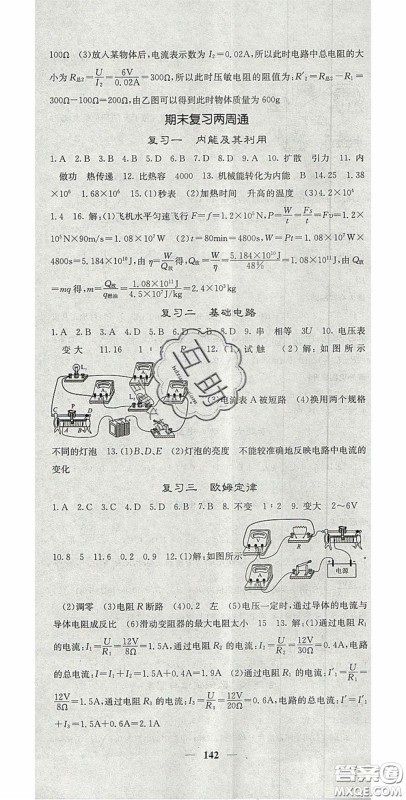 100Ω　(3)放人某物体后,电流表示数为 I₂=0.02A,所以此时电路中总电阻的大
小为 R总2=U/I₂=6V/0.02A=300Ω,所以此时压敏电阻的阻值为:R'₂=R总2-R₁=
300Ω-100Ω=200Ω,由乙图可以得到此时物体质量为 600g
期末复习两周通
复习一　内能及其利用
1.A　2.B　3.D　4.D　5.C　6.D　7.D　8.D　9.A　10.扩散　引力　11.内
做功　热传递　12.比热容　4000　13.机械能转化为内能　B　14.1.38×
10⁸　1.68×10⁴　15.(1)秒表　(2)加热时间　升高的温度　(3)4.2×10³
1.4　16.解:(1)飞机水平匀速飞行 F=f=1.2×10⁵N,P=W/t=Fs/t=Fv=1.2
×10⁵N×90m/s=1.08×10⁷W　(2)t=80min=4800s,W=Pt=1.08×10⁷W×
4800s=5.184×10¹⁰J,由 η=W/Q放得,Q放=W/η=5.184×10¹⁰J/48%=1.08×10¹¹J,由 Q放
=mq 得,m=Q放/q=1.08×10¹¹J/4.5×10⁷J/kg=2.4×10³kg
复习二　基础电路
1.A　2.B　3.A　4.D　5.D　6.C　7.B　8.D　9.串　相等　3U　10.电压表
变大　11.16　1:1　12.(1)　试触　(2)解:如图所示
电流表A被短路　(4)换用两个规格
不同的灯泡　13.(1)B、D、E　(2)灯泡的亮度　不能较准确地反映电路中电流的
变化
复习三　欧姆定律
1.A　2.C　3.C　4.D　5.A　6.A　7.B　8.不变　1:2　9.变大　2~6V
10.8　5　11.6　0.2　0.9　12.(1)解:如图所示
R
电源
(2)调零　(3)电阻 R 断路　(4)0.2　左　(5)电压一定时,通过导体的电流与
导体电阻成反比　(6)滑动变阻器的最大电阻太小　15　13.解:(1)通过电阻R₁
的电流:I₁=U/R₁=12V/8Ω=1.5A,通过电阻R₂的电流:I₂=U/R₂=12V/30Ω=0.4A,电路
的总电流:I=I₁+I₂=1.5A+0.4A=1.9A　(2)通过电阻R₁的电流:I'₁=U/R₁=
12V/8Ω=1.5A,通过电阻 R₃ 的电流:I₃=U/R₃=12V/20Ω=0.6A,电路的总电流:I'=I'₁
+I₃=1.5A+0.6A=2.1A
142
互助
答案圈
MXQE.COM